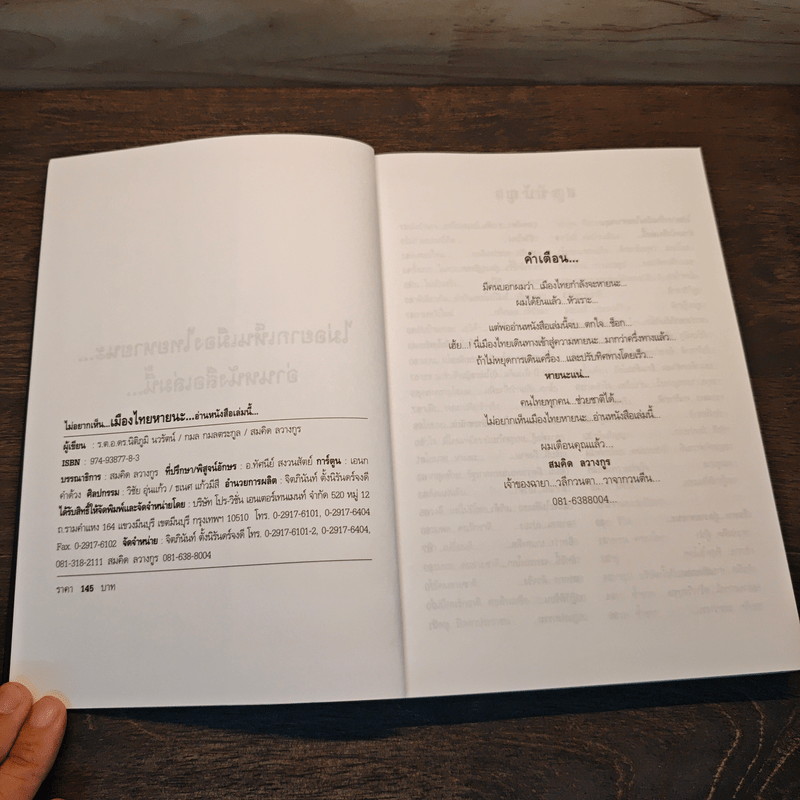 ไม่อยากเห็น...เมืองไทยหายนะ...อ่านหนังสือเล่มนี้...
ผู้เขียน : ร.ต.อ.ดร.นิติภูมิ นวรัตน์ / กมล กมลตระกูล / สมคิด ลวางกูร
ISBN : 974-93877-8-3
บรรณาธิการ : สมคิด ลวางกูร ที่ปรึกษา/พิสูจน์อักษร : อ.ทัศนีย์ สงวนสัตย์ การ์ตูน : เอนก
คำด้วง ศิลปกรรม : วิชัย อุ่นแก้ว / ชเนศ แก้วมีสี อำนวยการผลิต : จิตภินันท์ ตั้งนิรันดร์จงดี
ได้รับสิทธิ์ให้จัดพิมพ์และจัดจำหน่ายโดย : บริษัท โปร-วิชั่น เอนเตอร์เทนเมนท์ จำกัด 520 หมู่ 12
ถ.รามคำแหง 164 แขวงมีนบุรี เขตมีนบุรี กรุงเทพฯ 10510 โทร. 0-2917-6101, 0-2917-6404
Fax. 0-2917-6102 จัดจำหน่าย : จิตภินันท์ ตั้งนิรันดร์จงดี โทร. 0-2917-6101-2, 0-2917-6404,
081-318-2111 สมคิด ลวางกูร 081-638-8004
ราคา 145 บาท
คำเตือน...
มีคนบอกผมว่า...เมืองไทยกำลังจะหายนะ...
ผมได้ยินแล้ว...หัวเราะ...
แต่พออ่านหนังสือเล่มนี้จบ...ตกใจ...ช็อก...
เฮ้ย...! นี่เมืองไทยเดินทางเข้าสู่ความหายนะ...มากว่าครึ่งทางแล้ว...
ถ้าไม่หยุดการเดินเครื่อง...และปรับทิศทางโดยเร็ว...
หายนะแน่...
คนไทยทุกคน...ช่วยชาติได้...
ไม่อยากเห็นเมืองไทยหายนะ...อ่านหนังสือเล่มนี้...
ผมเตือนคุณแล้ว...
สมคิด ลวางกูร
เจ้าของฉายา...วลีกวนตา...วาจากวนตีน...
081-6388004...